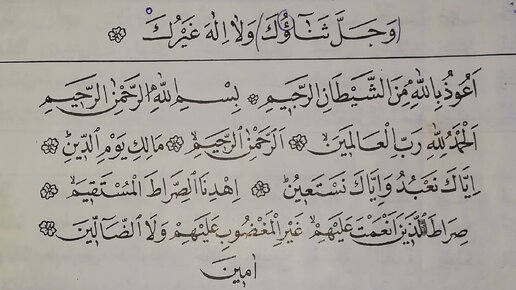 (وَجَلَّ ثَنَاؤُكَ) وَلَا اِلٰهَ غَيْرُكَ
اَعُوذُ بِاللّٰهِ مِنَ الشَّيْطَانِ الرَّجِيمِ بِسْمِ اللّٰهِ الرَّحْمٰنِ الرَّحِيمِ
اَلْحَمْدُ لِلّٰهِ رَبِّ الْعَالَمِينَ اَلرَّحْمٰنِ الرَّحِيمِ مَالِكِ يَوْمِ الدِّينِ
اِيَّاكَ نَعْبُدُ وَاِيَّاكَ نَسْتَعِينُ اِهْدِنَا الصِّرَاطَ الْمُسْتَقِيمَ
صِرَاطَ الَّذِينَ اَنْعَمْتَ عَلَيْهِمْ غَيْرِ الْمَغْضُوبِ عَلَيْهِمْ وَلَا الضَّالِّينَ
اٰمِينَ